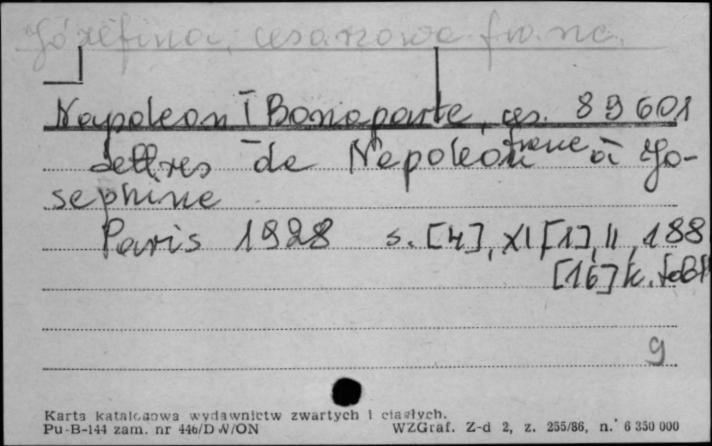 Józefina, cesarzowa franc.
Napoleon I Bonaparte, ces. 89601
franc
Lettres de Napoleon à Jo-
sephine
Paris 1928 s. [4], XI [1], II, 188
[16] k. tabl
9
Karta katalogowa wydawnictw zwartych i ciągłych.
Pu-B-144 zam. nr 446/DW/ON WZGraf. Z-d 2, z. 255/86, n. 6 350 000